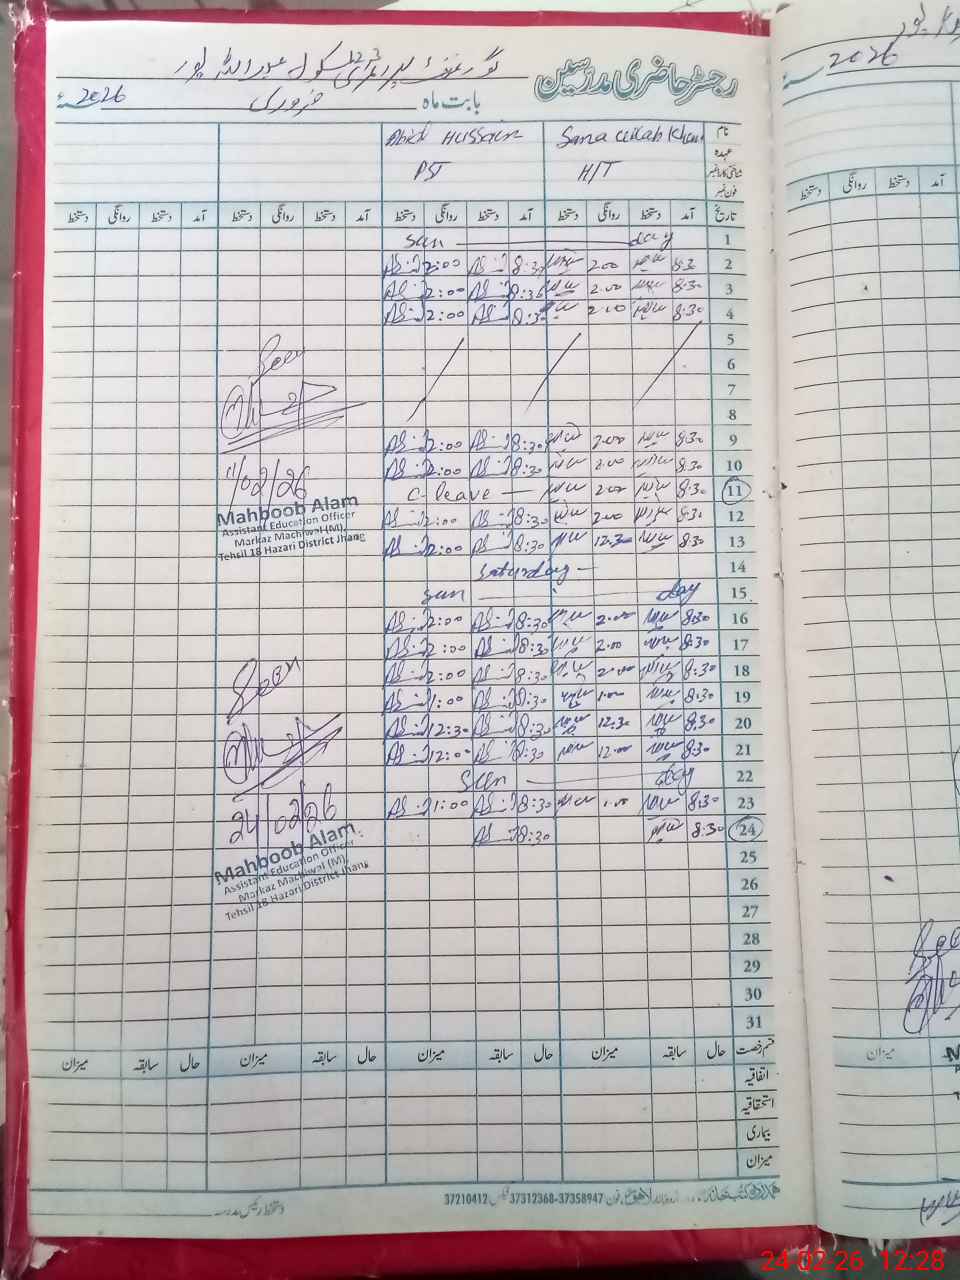 رجسٹر حاضری مدرسین گورنمنٹ پرائمری سکول عبداللہ پور
بابت ماہ فروری 2026ء
نام Sana ullah Khan Abid Hussain
عہدہ H/T PST
شناختی کارڈ نمبر
فون نمبر
تاریخ آمد دستخط روانگی دستخط آمد دستخط روانگی دستخط آمد دستخط روانگی دستخط آمد دستخط روانگی دستخط
1 Sun day
2 8:30 2:00 8:30 2:00
3 8:30 2:00 8:30 2:00
4 8:30 2:00 8:30 2:00
5
6
7
8
9 8:30 2:00 8:30 2:00
10 8:30 2:00 8:30 2:00
11 8:30 2:00 C-leave
12 8:30 2:00 8:30 2:00
13 8:30 12:30 8:30 2:00
14 Saturday
15 Sun day
16 8:30 2:00 8:30 2:00
17 8:30 2:00 8:30 2:00
18 8:30 2:00 8:30 2:00
19 8:30 1:00 8:30 1:00
20 8:30 12:30 8:30 12:30
21 8:30 12:00 8:30 12:00
22 Sun day
23 8:30 1:00 8:30 1:00
24 8:30 8:30
25
26
27
28
29
30
31
Seen
11/02/26
Mahboob Alam
Assistant Education Officer
Markaz Machiwal (M),
Tehsil 18 Hazari District Jhang
Seen
24/02/26
Mahboob Alam
Assistant Education Officer
Markaz Machiwal (M),
Tehsil 18 Hazari District Jhang
قسم رخصت حال سابقہ میزان حال سابقہ میزان حال سابقہ میزان حال سابقہ میزان
اتفاقیہ
استحقاقیہ
بیماری
میزان
لاہور فون 37358947-37312368 فیکس 37210412
دستخط رئیس مدرسہ
2026
آمد دستخط روانگی دستخط
میزان
24-02-26 12:28